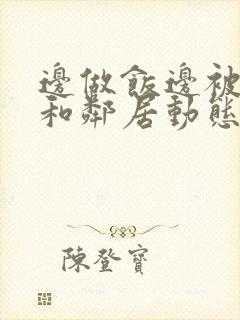 邊做飯邊被
和鄰居動態
陳登寶